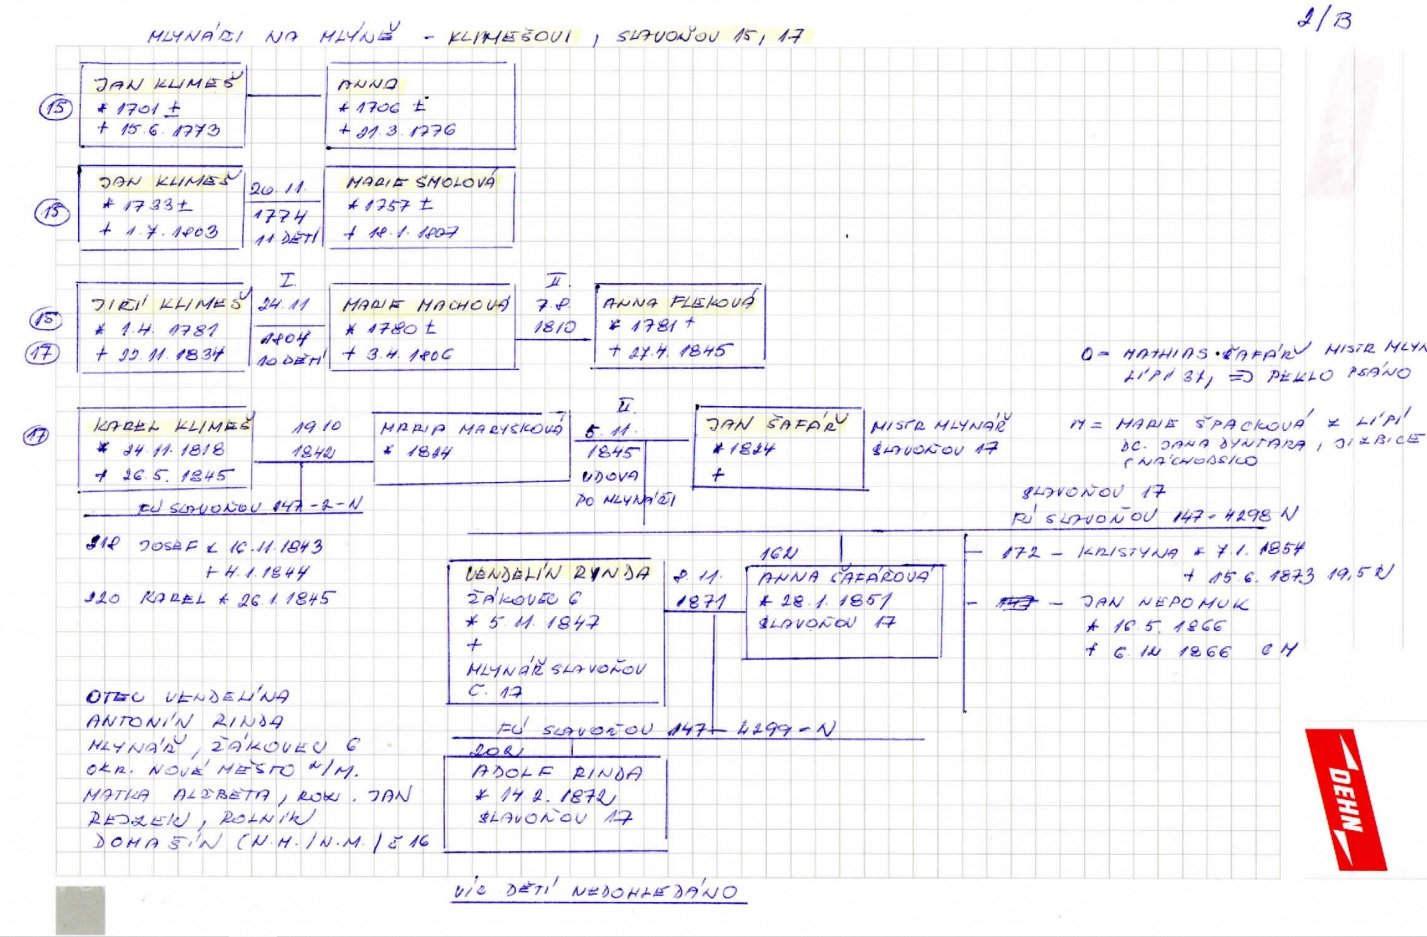 2/B
MLYNÁŘI NA MLÝNĚ - KLIMEŠOVI, SLAVOŇOV 15, 17
15
JAN KLIMEŠ
* 1701 ±
+ 15.6.1773
ANNA
* 1706 ±
+ 21.3.1776
15
JAN KLIMEŠ
* 1733 ±
+ 1.7.1803
20.11.
1774
11 DĚTÍ
MARIE SMOLOVÁ
* 1757 ±
+ 18.1.1807
15
17
JIŘÍ KLIMEŠ
* 1.4. 1781
+ 22.11.1834
I.
24.11
1804
10 DĚTÍ
MARIE MACHOVÁ
* 1780 ±
+ 3.4.1806
II.
7.8.
1810
ANNA FLEKOVÁ
* 1781 +
+ 27.4. 1845
O = MATHIAS ŠAFÁŘ MISTR MLYN
LÍPÍ 31, => PEKLO PSÁNO
17
KAREL KLIMEŠ
* 24.11.1818
+ 26.5.1845
19 10
1842
MARIA MARYSKOVÁ
* 1824
II.
5.11.
1845
VDOVA
PO MLYNÁŘI
JAN ŠAFÁŘ
* 1824
+
MISTR MLYNÁŘ
SLAVOŇOV 17
M = MARIE ŠPAČKOVÁ Z LÍPÍ
DC. JANA DYNTARA, JIZBICE
(NÁCHODSKO
FÚ SLAVOŇOV 147-2-N
SLAVOŇOV 17
FÚ SLAVOŇOV 147-4298 N
218 JOSEF * 16.11.1843
+ 4.1.1844
220 KAREL * 26.1.1845
VENDELÍN RYNDA
ŽÁKOVEC 6
* 5.11.1847
+
MLYNÁŘ SLAVOŇOV
Č. 17
8.11.
1871
162
ANNA ŠAFÁŘOVÁ
* 28.1.1851
SLAVOŇOV 17
172 - KRISTYNA * 7.1.1854
+ 15.6.1873 19,5 R
- JAN NEPOMUK
* 16.5.1866
+ 6.12 1866 6M
OTEC VENDELÍNA
ANTONÍN RINDA
MLYNÁŘ, ŽÁKOVEC 6
OKR. NOVÉ MĚSTO N/M.
MATKA ALŽBĚTA, ROZ. JAN
REJZEK, ROLNÍK
DOMAŠÍN (N.M./N.M./ Č 16
FÚ SLAVOŇOV 147-4299-N
202
ADOLF RINDA
* 14 2. 1872
SLAVOŇOV 17
VÍC DĚTÍ NEDOHLEDÁNO
DEHN